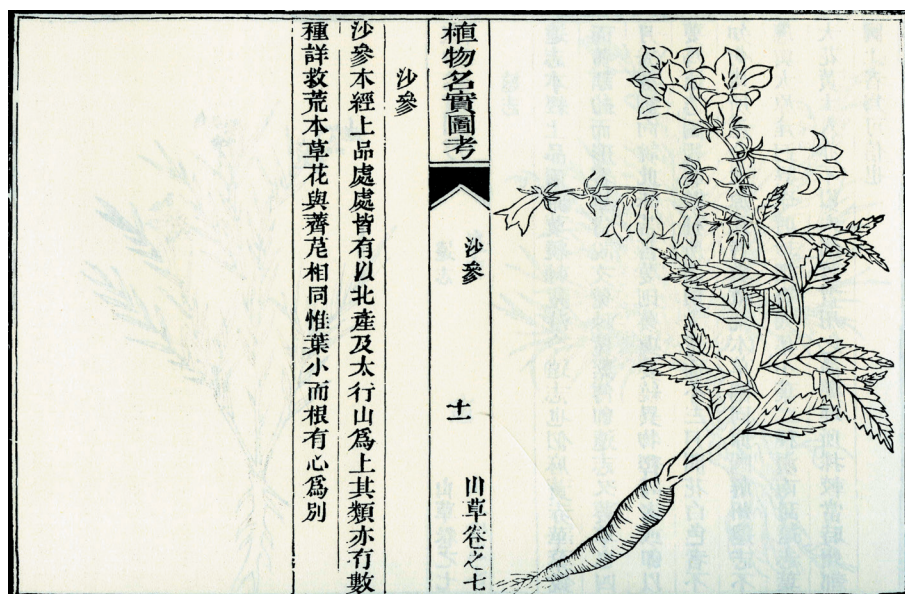 植物名實圖考
沙參
十一
山草卷之七
沙參
沙參本經上品處處皆有以北產及太行山爲上其類亦有數
種詳救荒本草花與薺苨相同惟葉小而根有心爲別